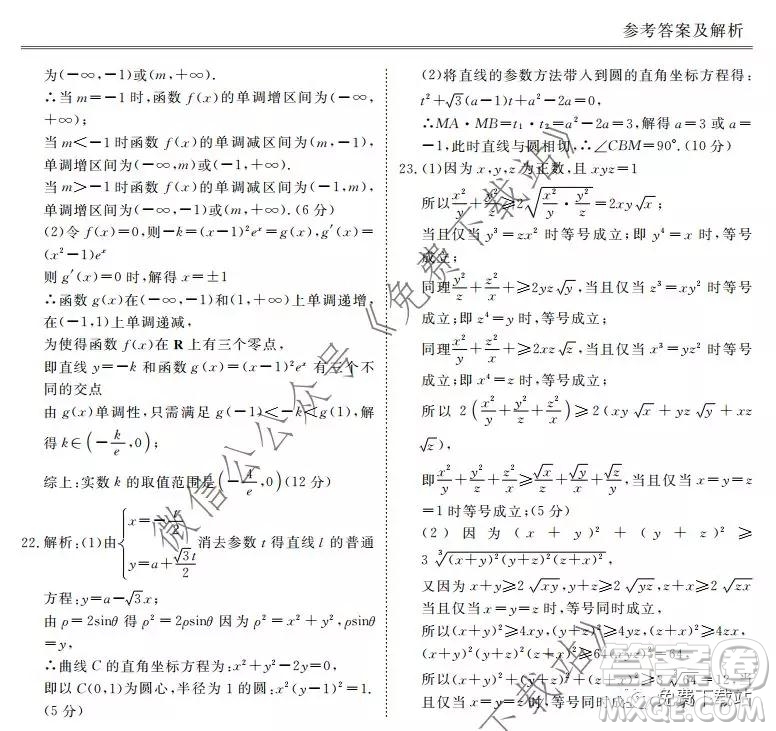 参考答案及解析
为(-∞,-1)或(m,+∞).
∴当m=-1时,函数f(x)的单调增区间为(-∞,
+∞);
当m<-1时函数f(x)的单调减区间为(m,-1),
单调增区间为(-∞,m)或(-1,+∞).
当m>-1时函数f(x)的单调减区间为(-1,m),
单调增区间为(-∞,-1)或(m,+∞).(6分)
(2)令f(x)=0,则-k=(x-1)²eˣ=g(x),g′(x)=
(x²-1)eˣ
则g′(x)=0时,解得x=±1
∴函数g(x)在(-∞,-1)和(1,+∞)上单调递增,
在(-1,1)上单调递减,
为使得函数f(x)在R上有三个零点,
即直线y=-k和函数g(x)=(x-1)²eˣ有三个不
同的交点
由g(x)单调性,只需满足g(-1)<-k<g(1),解
得k∈(-k/e,0);
综上:实数k的取值范围是(-4/e,0)(12分)
22.解析:(1)由{x=-t/2
y=a+√3t/2 消去参数t得直线l的普通
方程:y=a-√3x;
由ρ=2sinθ得ρ²=2ρsinθ因为ρ²=x²+y²,ρsinθ
=y,
∴曲线C的直角坐标方程为:x²+y²-2y=0,
即以C(0,1)为圆心,半径为1的圆:x²+(y-1)²=1.
(5分)
(2)将直线的参数方法带入到圆的直角坐标方程得:
t²+√3(a-1)t+a²-2a=0,
∴MA·MB=t₁·t₂=a²-2a=3,解得a=3或a=
-1,此时直线与圆相切,∴∠CBM=90°.(10分)
23.(1)因为x,y,z为正数,且xyz=1
所以x²/y+y²/z≥2√(x²/y·y²/z)=2xy√x;
当且仅当y³=zx²时等号成立;即y⁴=x时,等号
成立.
同理y²/z+z²/x≥2yz√y,当且仅当z³=xy²时等号
成立;即z⁴=y时,等号成立;
同理z²/x+x²/y≥2xz√z,当且仅当x³=yz²时等号
成立;即x⁴=z时,等号成立;
所以2(x²/y+y²/z+z²/x)≥2(xy√x+yz√y+xz
√z),
即x²/y+y²/z+z²/x≥√x/z+√y/x+√z/y,当且仅当x=y=z=
1时等号成立;(5分)
(2)因为(x+y)²+(y+z)²+(z+x)²≥
3∛((x+y)²(y+z)²(z+x)²),
又因为x+y≥2√xy,y+z≥2√yz,x+z≥2√zx
当且仅当x=y=z=1时,等号同时成立,
所以(x+y)²≥4xy,(y+z)²≥4yz,(z+x)²≥4xz
所以(x+y)²(y+z)²(z+x)²≥64(xyz)²=64,
所以(x+y)²+(y+z)²+(z+x)²≥3∛64=12,当
且仅当x=y=z=1时,等号成立.
微信公众号《免费下载站》
《免费下载站》
免费下载站
答案圈